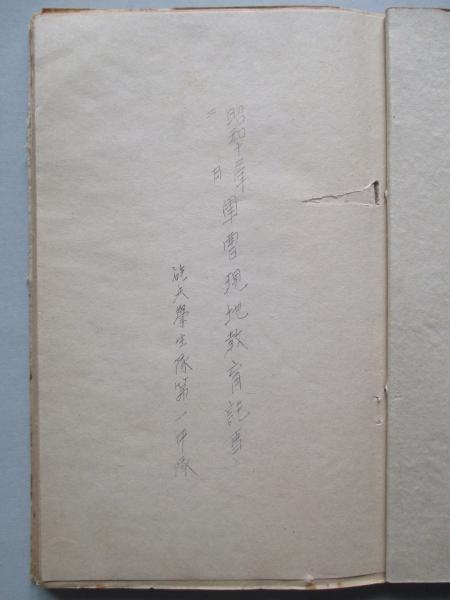 昭和十三年
二月
軍曹現地教育記事
砲大學生隊第一中隊